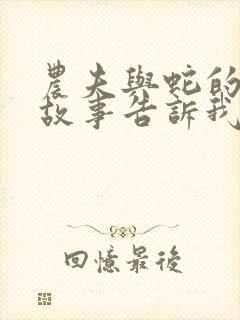 農夫與蛇的
故事告訴我
回憶最後